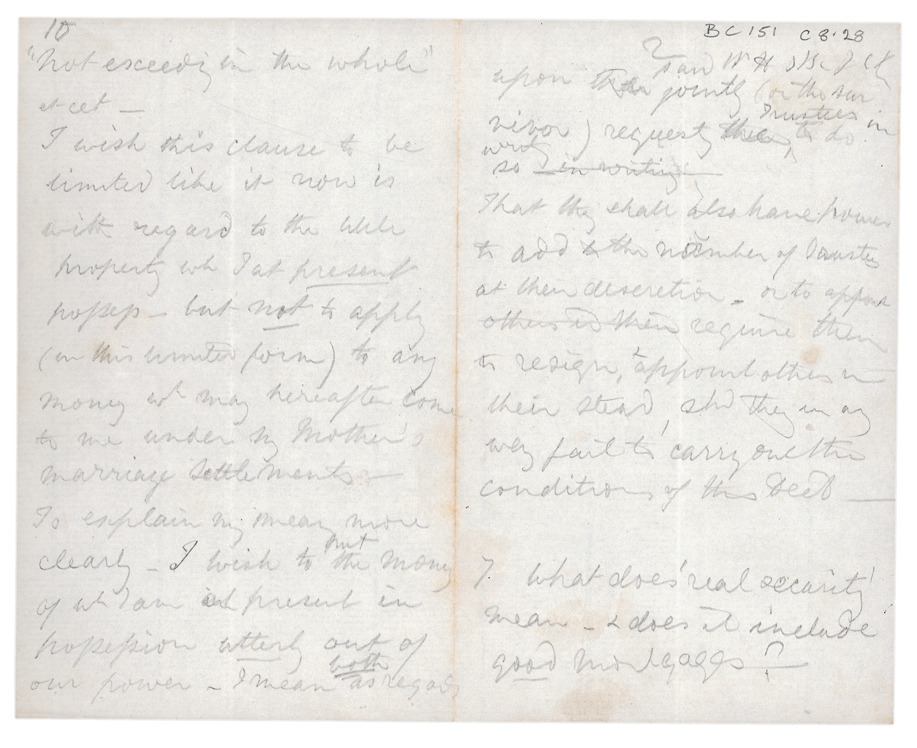 10
"Not exceeding in the whole"
et cet —
I wish this clause to be
limited like it now is
with regard to the little
property wh I at present
possess — but not to apply
(in this limited form) to any
money wh may hereafter come
to me under my Mother's
marriage settlements —
To explain my meang more
clearly — I wish to put the money
of wh I am at present in
possession utterly out of
our power — I mean both as regards
BC 151 C8.28
2
said W H
upon jointly (or the sur
vivor) request Trustees in
to do
so in writing
That they shall also have power
to add to the number of Trustees
at their descretion — or to appoint
others in their require them
to resign, & appoint others in
their stead, shd they in any
way fail to carry out the
conditions of this Deed —
7. What does 'real security'
mean — & does it include
good mortgages?